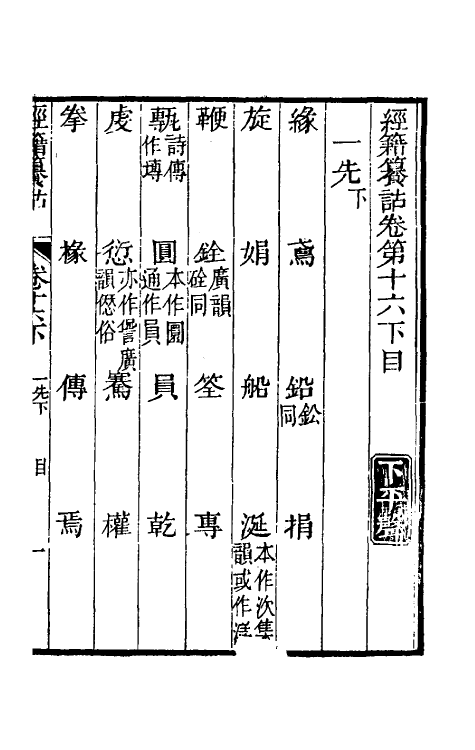 經籍籑詁卷第十六下目
下平聲
一先下
緣 鳶 鉛鈆同 捐
旋 娟 船 涎本作㳄集韻或作
鞭 銓廣韻硂同 筌 專
甎詩傳作塼 圓本作圜通作員 員 乾
虔 愆亦作諐廣韻僁俗 騫 權
拳 椽 傳 焉
經籍籑詁 卷十六下 一先下 目 一